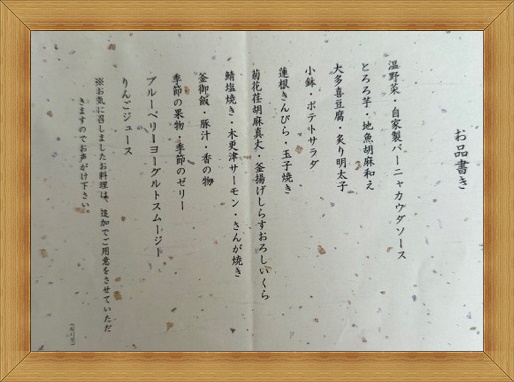 お品書き
温野菜・自家製バーニャカウダソース
とろろ芋・地魚胡麻和え
大多喜豆腐・炙り明太子
小鉢・ポテトサラダ
蓮根きんぴら・玉子焼き
菊花荏胡麻真丈・釜揚げしらすおろしいくら
鯖塩焼き・木更津サーモン・さんが焼き
釜御飯・豚汁・香の物
季節の果物・季節のゼリー
ブルーベリーヨーグルトスムージー
りんごジュース
※お気に召しましたお料理は、追加でご用意をさせていただ
きますのでお声がけ下さい。